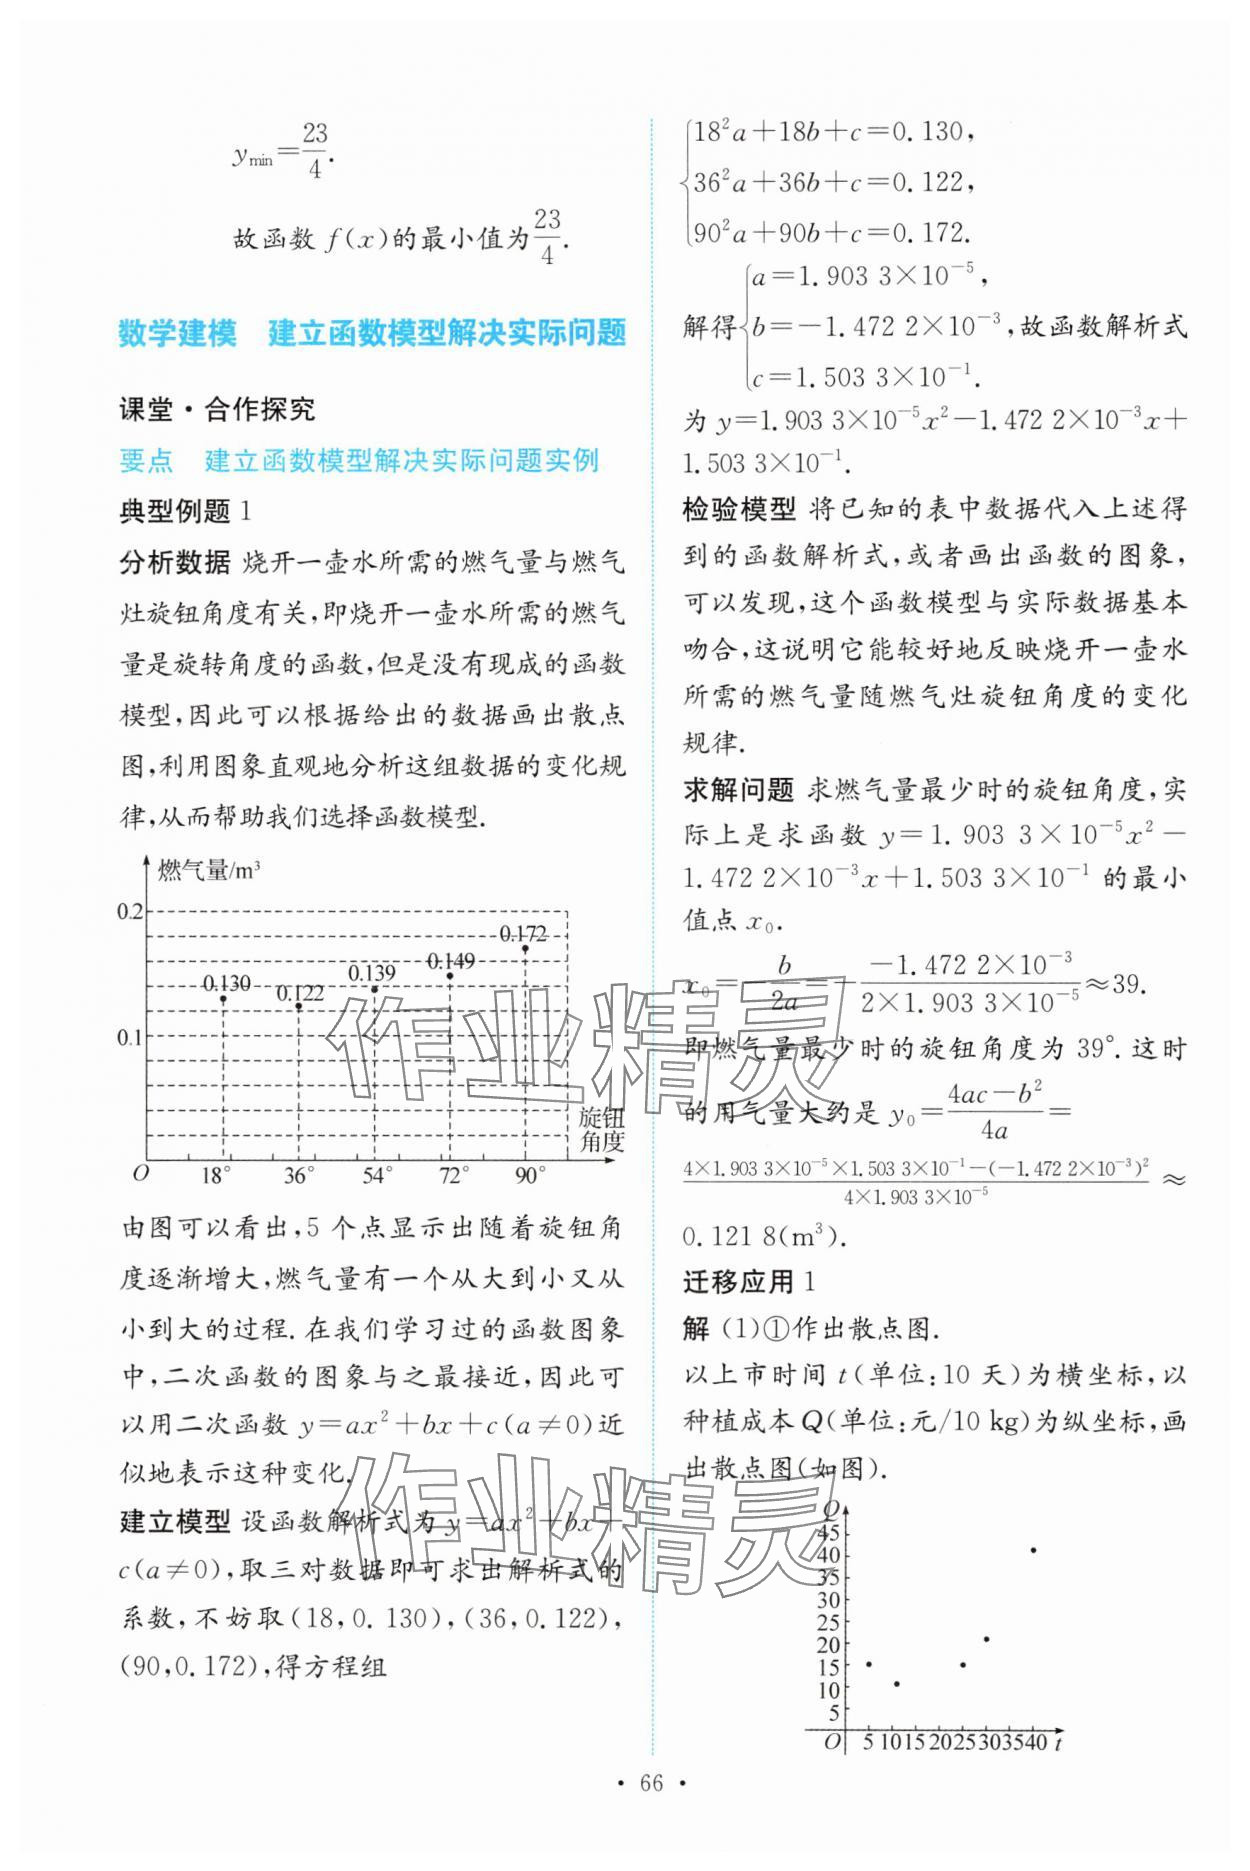 y_min=23/4.
故函数 f(x)的最小值为23/4.
数学建模 建立函数模型解决实际问题
课堂·合作探究
要点 建立函数模型解决实际问题实例
典型例题 1
分析数据 烧开一壶水所需的燃气量与燃气
灶旋钮角度有关,即烧开一壶水所需的燃气
量是旋转角度的函数,但是没有现成的函数
模型,因此可以根据给出的数据画出散点
图,利用图象直观地分析这组数据的变化规
律,从而帮助我们选择函数模型.
燃气量/m³
0.2
0.172
0.149
0.139
0.130
0.122
0.1
旋钮
角度
O 18° 36° 54° 72° 90°
由图可以看出,5 个点显示出随着旋钮角
度逐渐增大,燃气量有一个从大到小又从
小到大的过程.在我们学习过的函数图象
中,二次函数的图象与之最接近,因此可
以用二次函数 y=ax²+bx+c(a≠0)近
似地表示这种变化.
建立模型 设函数解析式为 y=ax²+bx+
c(a≠0),取三对数据即可求出解析式的
系数,不妨取(18,0.130),(36,0.122),
(90,0.172),得方程组
18²a+18b+c=0.130,
36²a+36b+c=0.122,
90²a+90b+c=0.172.
a=1.903 3×10⁻⁵,
解得 b=-1.472 2×10⁻³,故函数解析式
c=1.503 3×10⁻¹.
为 y=1.903 3×10⁻⁵x²-1.472 2×10⁻³x+
1.503 3×10⁻¹.
检验模型 将已知的表中数据代入上述得
到的函数解析式,或者画出函数的图象,
可以发现,这个函数模型与实际数据基本
吻合,这说明它能较好地反映烧开一壶水
所需的燃气量随燃气灶旋钮角度的变化
规律.
求解问题 求燃气量最少时的旋钮角度,实
际上是求函数 y=1.903 3×10⁻⁵x²-
1.472 2×10⁻³x+1.503 3×10⁻¹ 的最小
值点 x₀.
x₀=-b/2a=-(-1.472 2×10⁻³)/(2×1.903 3×10⁻⁵)≈39.
即燃气量最少时的旋钮角度为 39°.这时
的用气量大约是 y₀=(4ac-b²)/4a=
(4×1.903 3×10⁻⁵×1.503 3×10⁻¹-(-1.472 2×10⁻³)²)/(4×1.903 3×10⁻⁵)≈
0.121 8(m³).
迁移应用 1
解 (1)①作出散点图.
以上市时间 t(单位:10 天)为横坐标,以
种植成本 Q(单位:元/10 kg)为纵坐标,画
出散点图(如图).
Q
45
40
35
30
25
20
15
10
5
O 5 10 15 20 25 30 35 40 t
· 66 ·
作业精灵
作业精灵